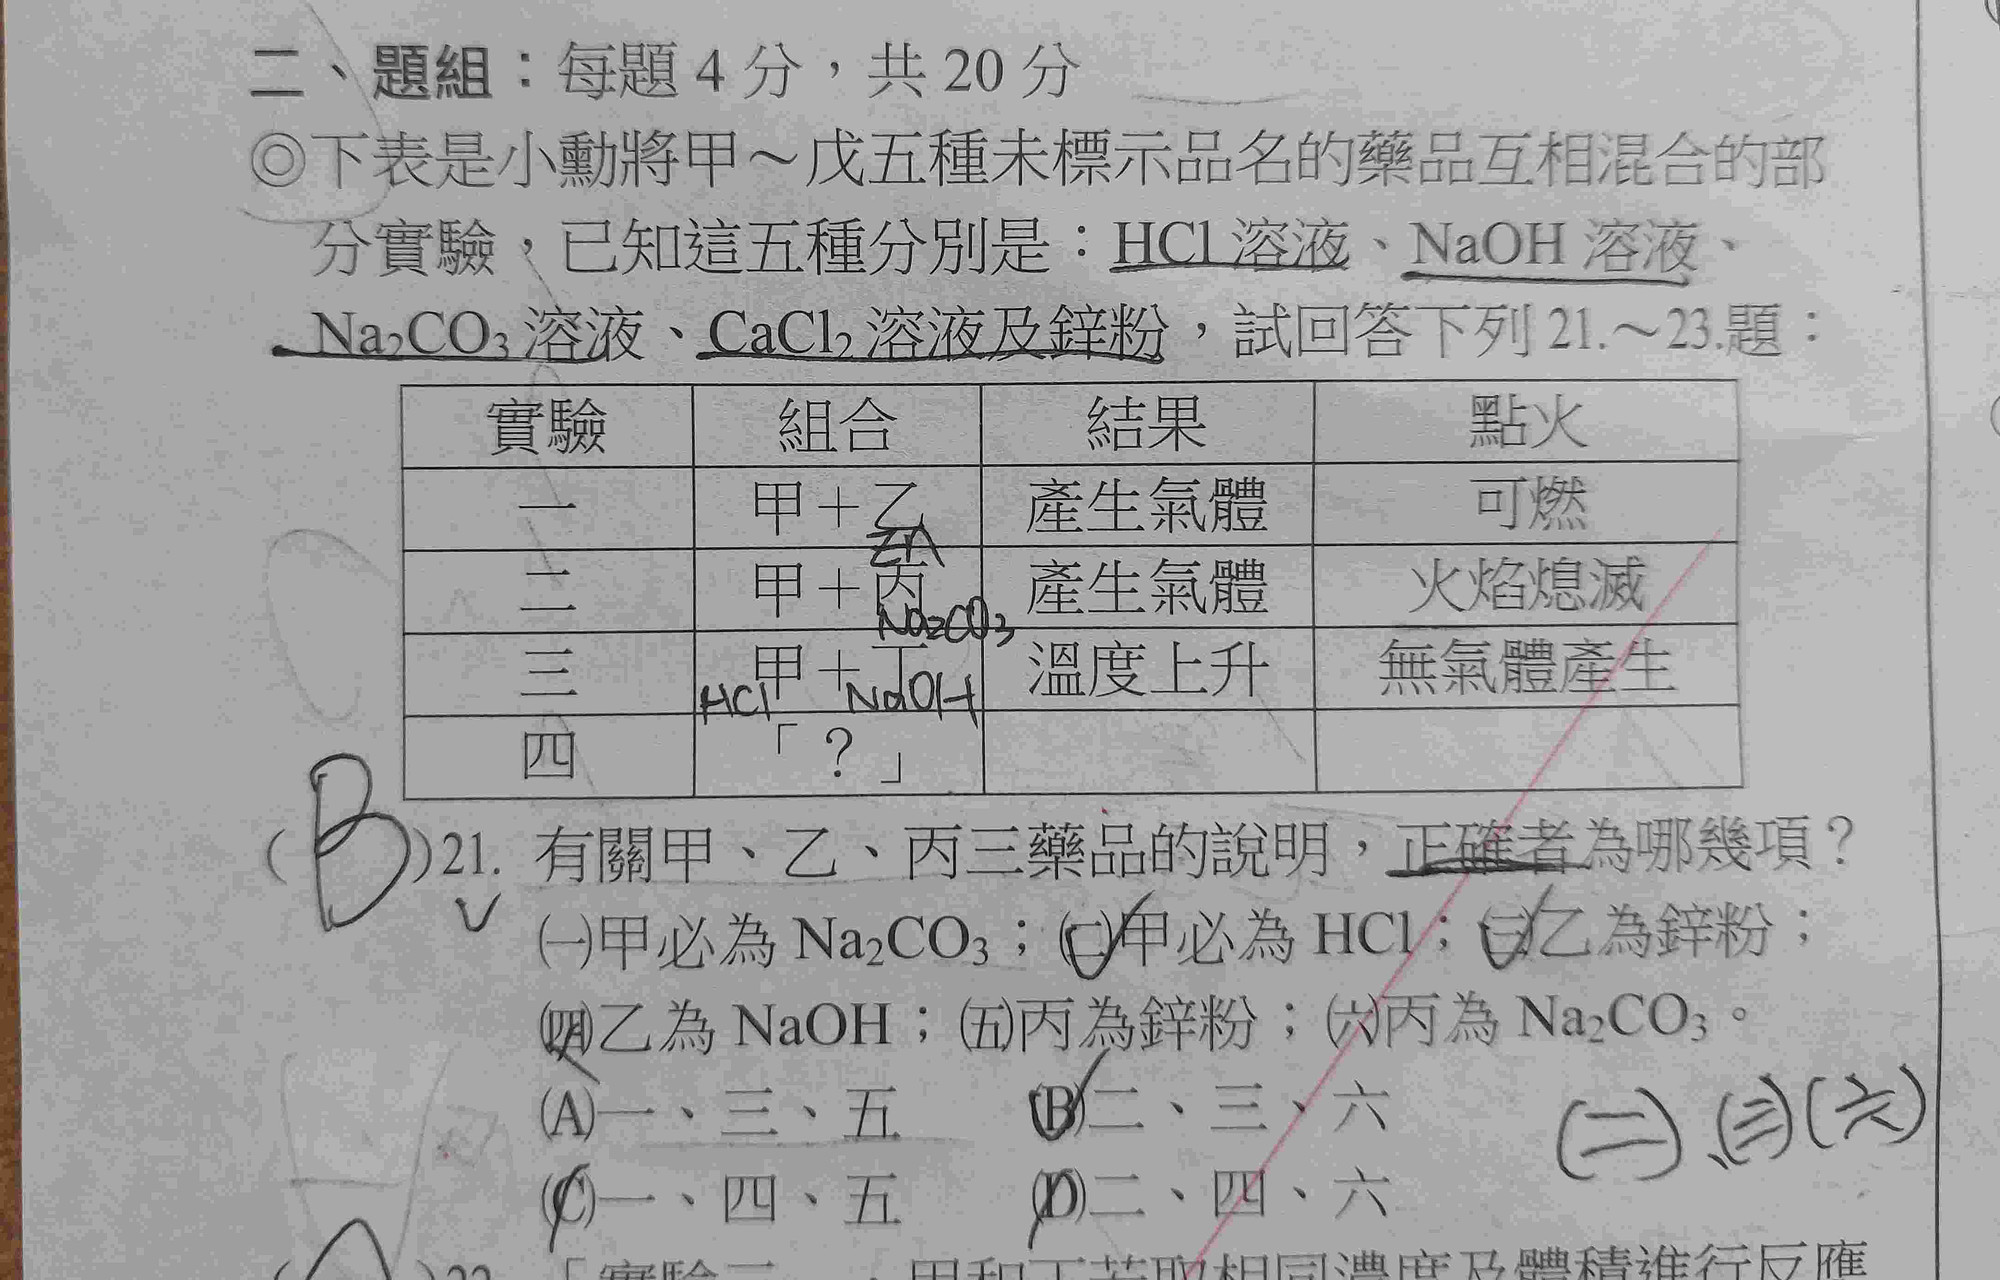 二、題組：每題 4 分，共 20 分
◎下表是小勳將甲～戊五種未標示品名的藥品互相混合的部
分實驗，已知這五種分別是：HCl 溶液、NaOH 溶液、
Na₂CO₃ 溶液、CaCl₂ 溶液及鋅粉，試回答下列 21.～23.題：
實驗 組合 結果 點火
一 甲＋乙 產生氣體 可燃
Zn
二 甲＋丙 產生氣體 火焰熄滅
Na₂CO₃
三 甲＋丁 溫度上升 無氣體產生
HCl NaOH
四 「？」
( B )21. 有關甲、乙、丙三藥品的說明，正確者為哪幾項？
㈠甲必為 Na₂CO₃；㈡甲必為 HCl；㈢乙為鋅粉；
㈣乙為 NaOH；㈤丙為鋅粉；㈥丙為 Na₂CO₃。
(A)一、三、五 (B)二、三、六
(二)、(三)(六)
(C)一、四、五 (D)二、四、六
( )22. 「實驗三」，甲和丁若取相同濃度及體積進行反應